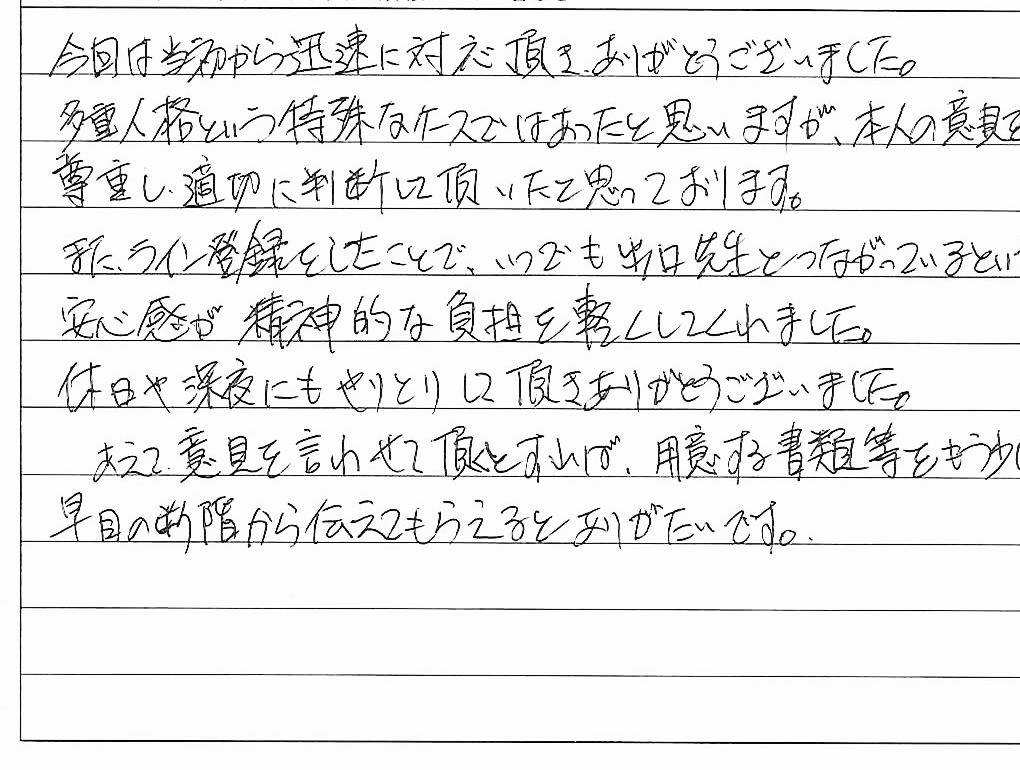 今回は当初から迅速に対応頂き、ありがとうございました。
多重人格という特殊なケースではあったと思いますが、本人の意見を
尊重し、適切に判断して頂いたと思っております。
また、ライン登録をしたことで、いつでも出口先生とつながっているとい
安心感が精神的な負担を軽くしてくれました。
休日や深夜にもやりとりして頂きありがとうございました。
あえて意見を言わせて頂くとすれば、用意する書類等をもう少し
早目の断階から伝えてもらえるとありがたいです。